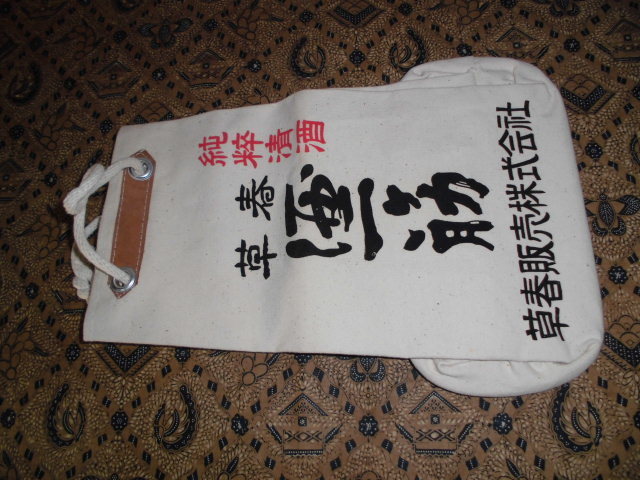 純粋清酒
草春
酒一筋
草春販売株式会社